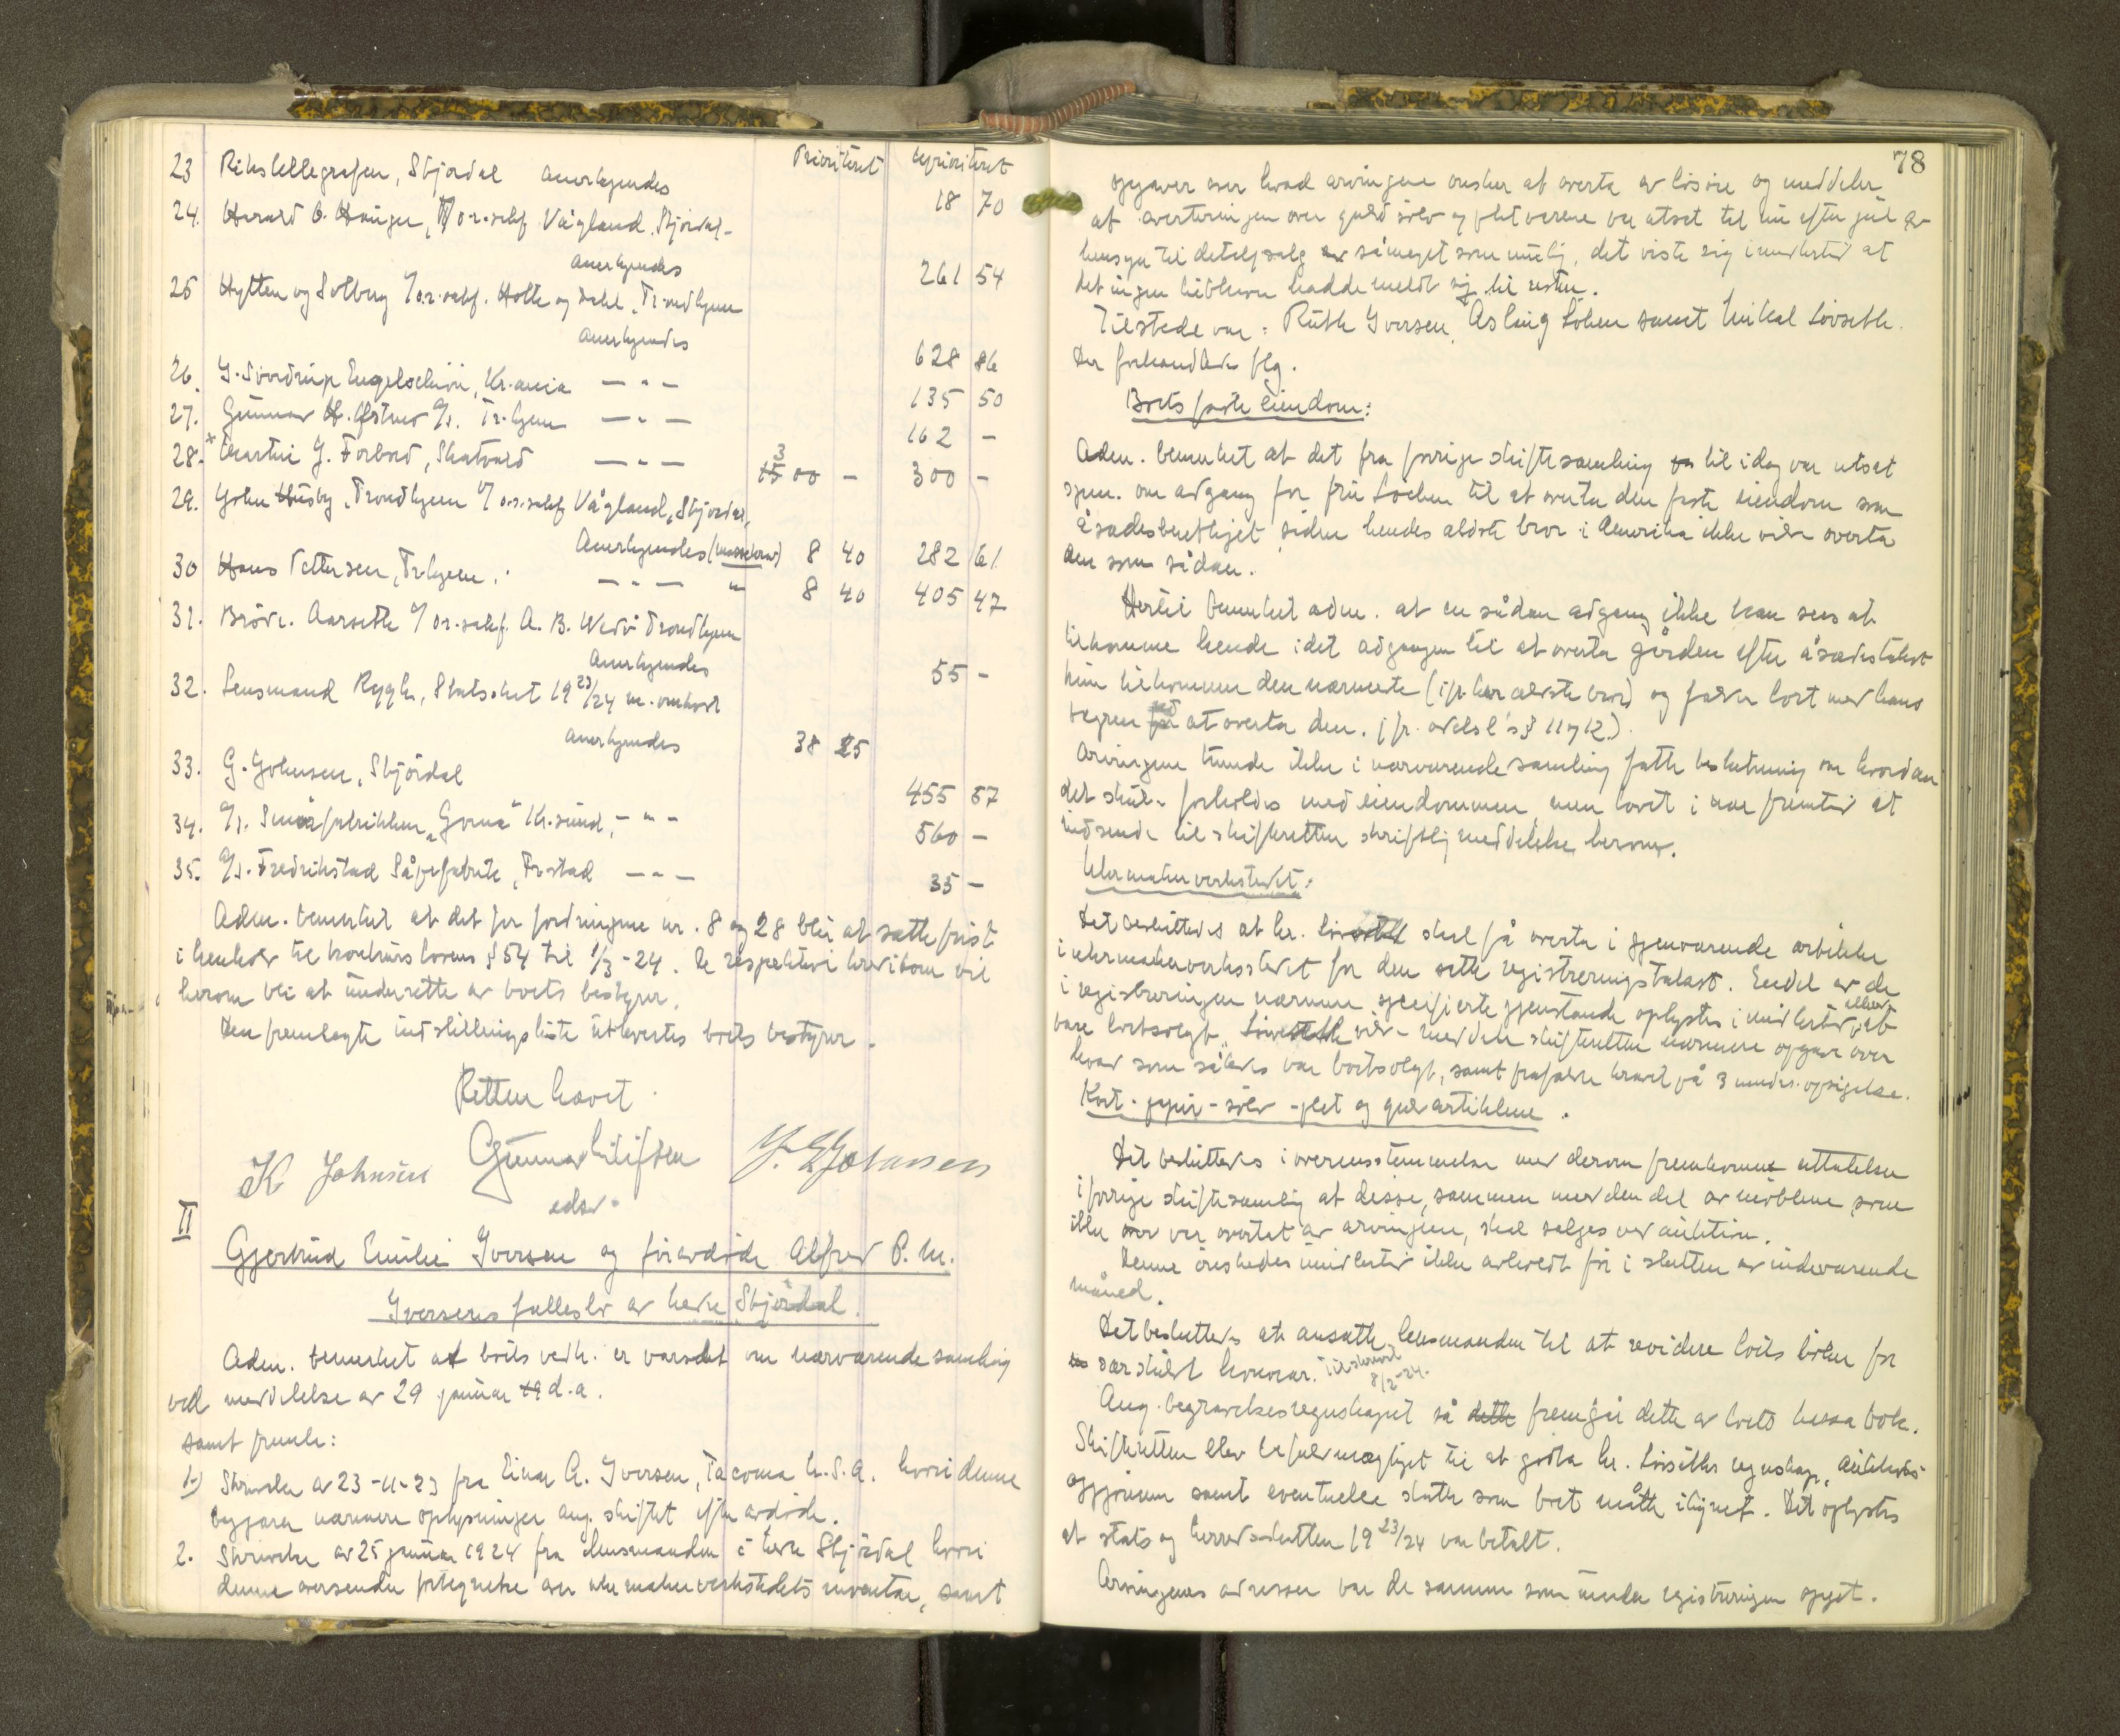 Prioritert uprioritert
23 Rikstellegrafen, Stjørdal anerkjendes 18 70
24. Harard O. Hanger, v/ o.r.sakf. Vågland, Stjørdal-
anerkjendes 261 54
25 Hytten og Solberg v/ o.r.sakf. Holte og Dahl, Trondhjem
anerkjendes 628 86
26. J. Sverdrup Engelschiøn, Kr.ania — " — 135 50
27. Gunnar H. Østmo A/S. Tr.hjem — " — 162 —
28. * Martin J. Forbord, Skatvold — " — 3 15 00 — 300 —
29. John Husby, Trondhjem v/ o.r.sakf Vågland, Stjørdal,
Anerkjendes (massekrav) 8 40 282 61
30 Hans Pettersen, Tr.hjem. — " — " 8 40 405 47
31. Brødr. Aarseth v/ or.sakf. A. B. Wedø Trondhjem
Anerkjendes 55 —
32. Lensmand Rygh, Statsskat 1923/24 m. omkost
anerkjendes 38 25
33. G. Johnsen, Stjørdal 455 57
34. A/S. Smørfabrikken "Goma" Kr.sund, — " — 560 —
35. A/S. Fredrikstad Såpefabrik, Fr.stad — " — 35 —
Adm. bemerket at det for fordringene nr. 8 og 28 blir at sætte frist
i henhold til konkurslovens § 54 til 1/3-24. De respektive kreditorer vil
herom bli at underrette av boets bestyrer.
Den fremlagte indstillingsliste utlevertes boets bestyrer.
Retten hævet.
K Johnsen Gunnar J. E. Johansen
edsv.
II
Gjertrud Emilie Iversen og foravdøde Alfred P. M.
Iversens fellesbo av nedre Stjørdal.
Adm. bemerket at boets vedk. er varslet om nærværende samling
ved meddelelse av 29 januar 19 d.a.
samt fremla:
1.) Skrivelse av 23-11-23 fra Einar A. Iversen, Tacoma U.S.A. hvori denne
begjærer nærmere oplysninger ang. skiftet efter avdøde.
2. Skrivelse av 25 januar 1924 fra lensmanden i nedre Stjørdal hvori
denne oversender fortegnelse over urmakerverkstedets inventar, samt
78
opgaver over hvad arvingene ønsker at overta av løsøre og meddeler
at avertering en over guld sølv og pletvarene var utsat til nu efter jul av
hensyn til detaljsalg av såmeget som mulig, det viste sig imidlertid at
det ingen liebhavere hadde meldt sig til resten.
Tilstede var: Ruth Iversen, Aslaug Løken samt Mikal Løvseth.
Der forhandledes flg.
Boets faste eiendom:
Adm. bemerket at det fra forrige skiftesamling til idag var utsat
spm. om adgang for fru Løken til at overta den faste eiendom som
åsædesberettiget siden hendes ældste bror i Amerika ikke vilde overta
den som sådan.
Hertil bemerket adm. at en sådan adgang ikke kan sees at
tilkomme hende idet adgangen til at overta gården efter åsædestakst
kun tilkommer den nærmeste (i fl. her ældste bror) og falder bort med hans
vegren ved at overta den. jfr. odelsl's § 11 og 12.)
Arvingene kunde ikke i nærværende samling fatte beslutning om hvordan
det skulde forholdes med eiendommen, men lovet i nær fremtid at
indsende til skifteretten skriftlig meddelelse herom.
Urmakerverkstedet:
Det besluttedes at hr. Løvseth skal få overta i gjenværende artikler
i urmakerverkstedet for den satte registreringstakst. Endel av de
i registreringen nærmere specifiserte gjenstande oplystes imidlertid allerede at
være bortsolgt. Løvseth vilde meddele skifteretten nærmere opgave over
hvad som således var bortsolgt, samt frafaldt kravet på 3 mndrs. opsigelse.
Kort- papir- sølv -plet og guldartiklene.
Det besluttedes i overensstemmelse med derom fremkomne uttalelser
i forrige skiftesamling at disse, sammen med den del av møblene som
ikke var overtat av arvingene, skal sælges ved auktion.
Denne ønskedes imidlertid ikke avholdt før i slutten av indeværende
måned.
Det besluttedes at ansætte lensmanden til at revidere boets bøker for
særskilt honorar. Tilskrevet 8/2-24.
Ang. begravelsesregnskapet så dette fremgår dette av boets kassa bok.
Skifteretten blev befuldmægtiget til at godta hr. Løvseths regnskap, auktions-
opgjørene samt eventuelle skatter som boet måtte ilignet. Det oplystes
at stats og herredsskatten 1923/24 var betalt.
Arvingenes adresser var de samme som under registreringen opgit.